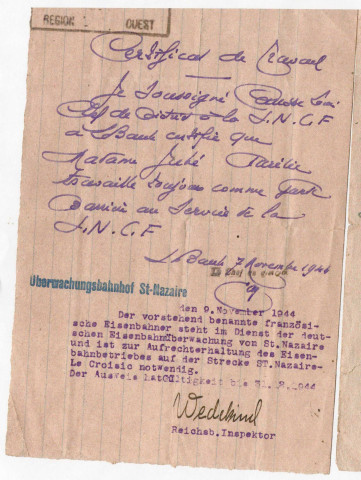 REGION OUEST
Certificat de Travail
Je Soussigné
Chef de District à la S.N.C.F
à La Baule certifie que
Madame Jubé
travaille toujours comme garde
Barrière au Service de la
S.N.C.F
La Baule 7 Novembre 1944
Überwachungsbahnhof St-Nazaire
den 9. November 1944
Der vorstehend benannte französi-
sche Eisenbahner steht im Dienst der deut-
schen Eisenbahnüberwachung von St. Nazaire
und ist zur Aufrechterhaltung des Eisen-
bahnbetriebes auf der Strecke ST. Nazaire-
Le Croisic notwendig.
Der Ausweis hat Gültigkeit bis 31. 1944
Wedekind
Reichsb. Inspektor